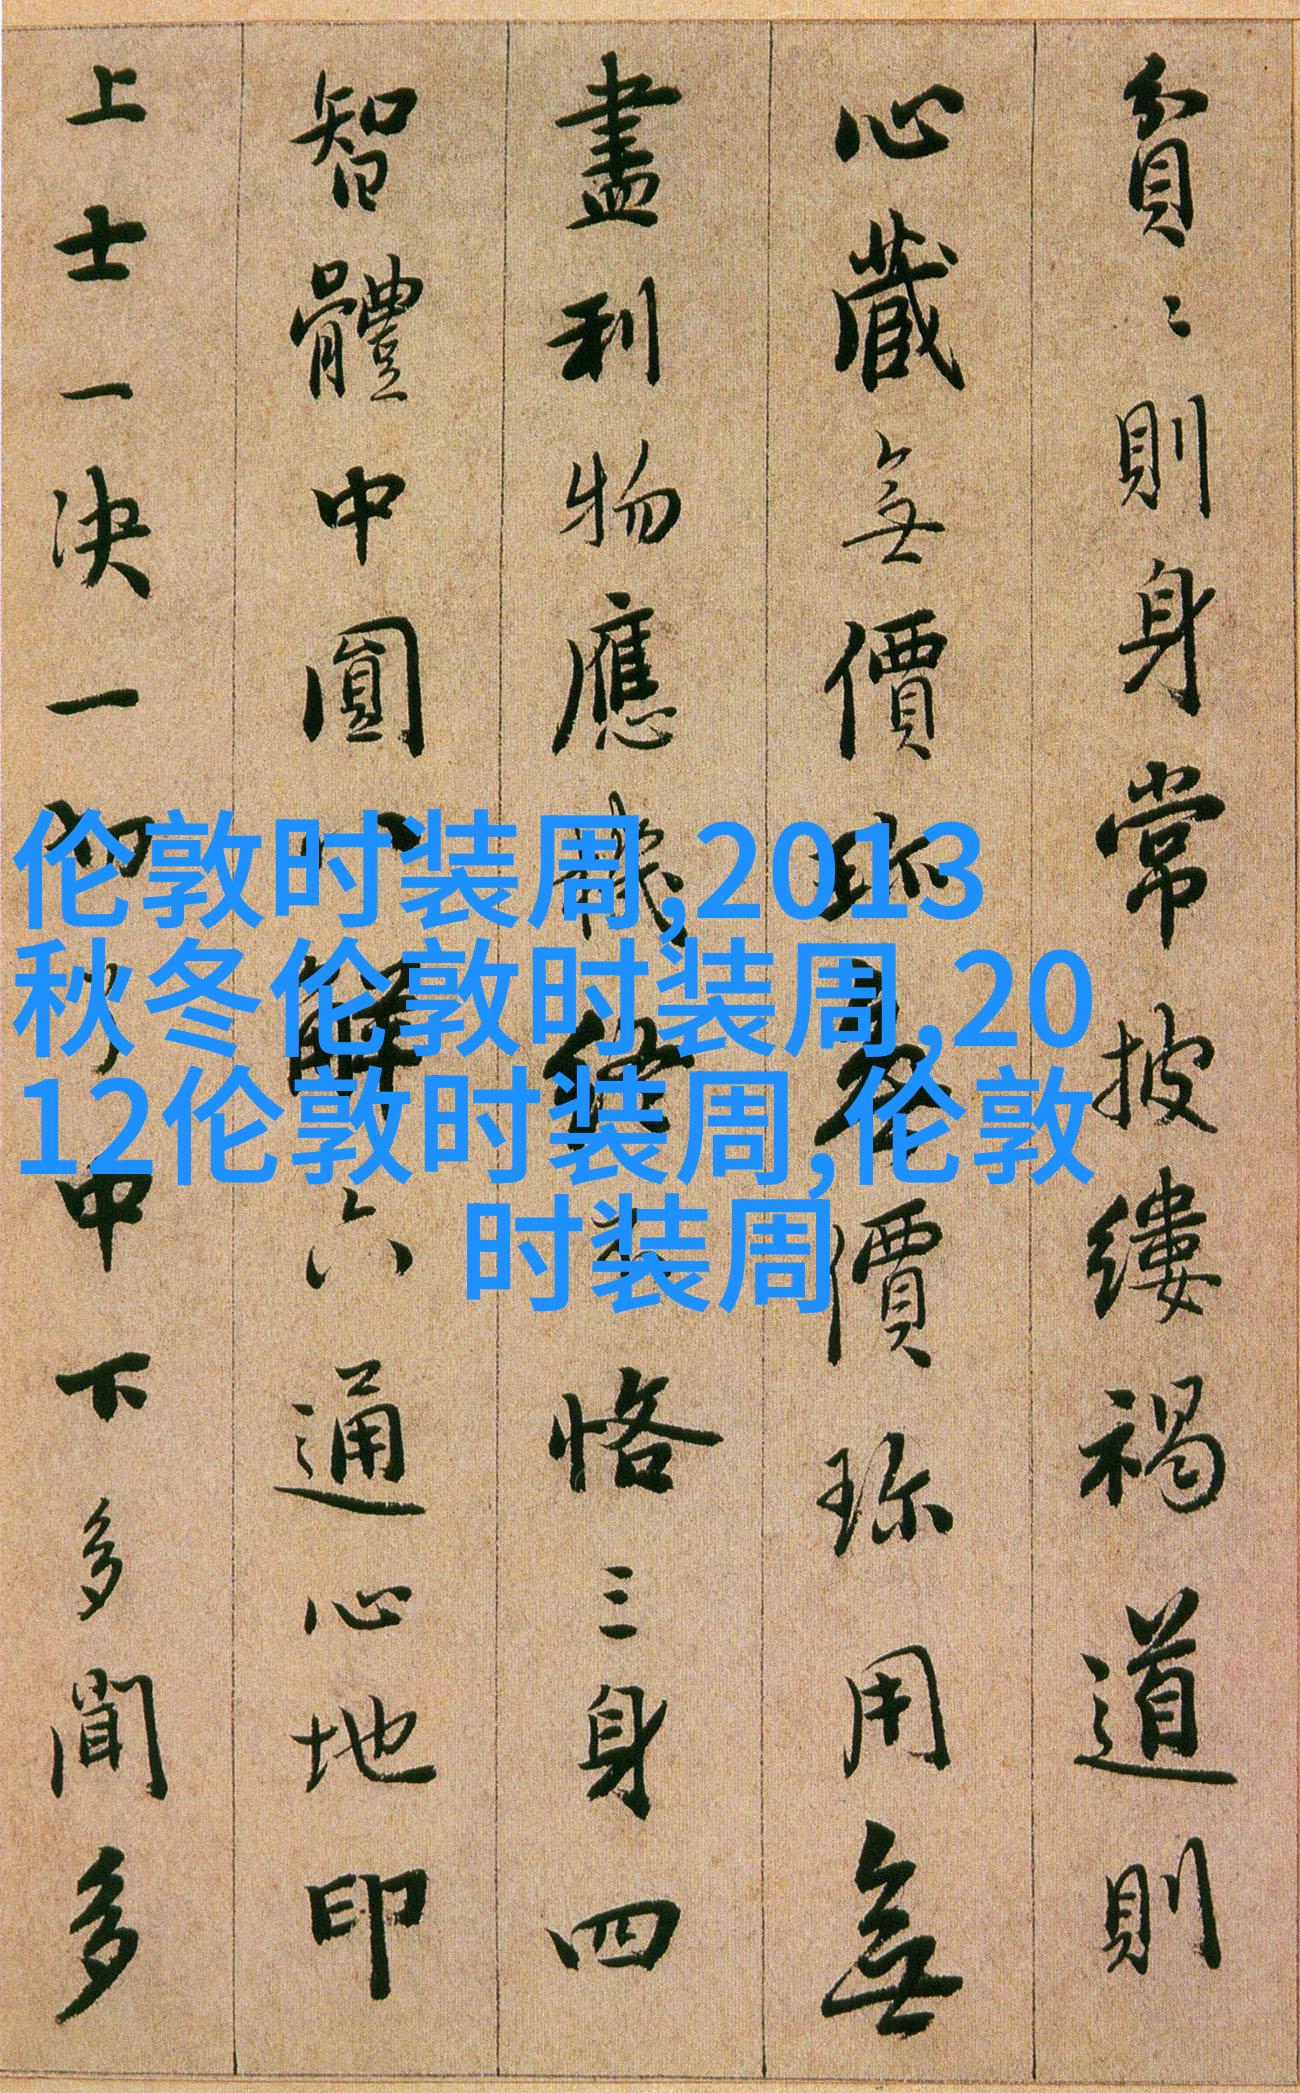 貧〻則身常披縷褐道則
心藏無價珎無價珎用無
盡利物應機終不恪三身四
智體中圓八解六通心地印
上士一決一切了中下多聞多
伦敦时装周,2013
秋冬伦敦时装周,20
12伦敦时装周,伦敦
时装周